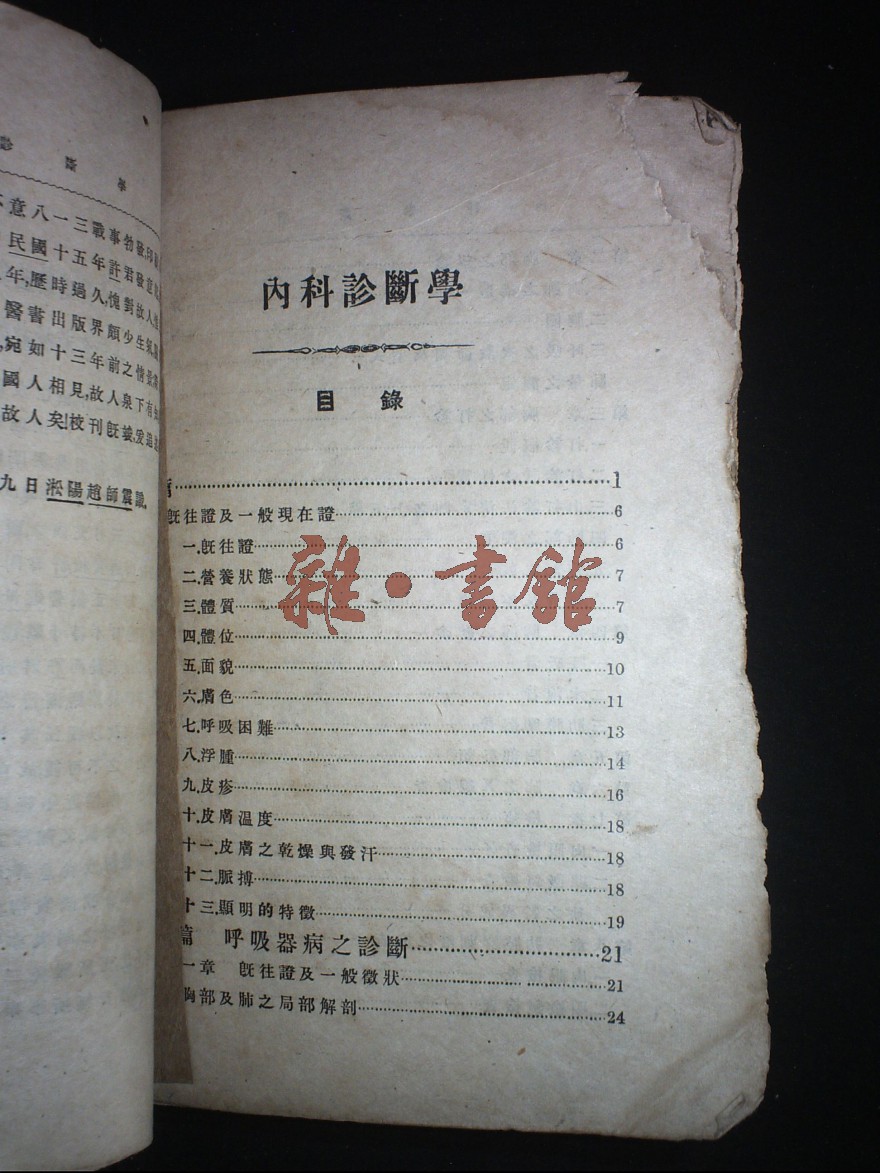 診斷學
意八一三戰事勃發,印
民國十五年許君發意
年,歷時過久,愧對故人
醫書出版界頗少生氣
宛如十三年前之情景
國人相見,故人泉下有
故人矣!校刊旣竣,爰
九日淞陽趙師震識
內科診斷學
目錄
1
旣往證及一般現在證 6
一.旣往證 6
二.營養狀態 7
三.體質 7
四.體位 9
五.面貌 10
六.膚色 11
七.呼吸困難 13
八.浮腫 14
九.皮疹 16
十.皮膚溫度 18
十一.皮膚之乾燥與發汗 18
十二.脈搏 18
十三.顯明的特徵 19
篇 呼吸器病之診斷 21
一章 旣往證及一般徵狀 21
胸部及肺之局部解剖 24
雜·書館